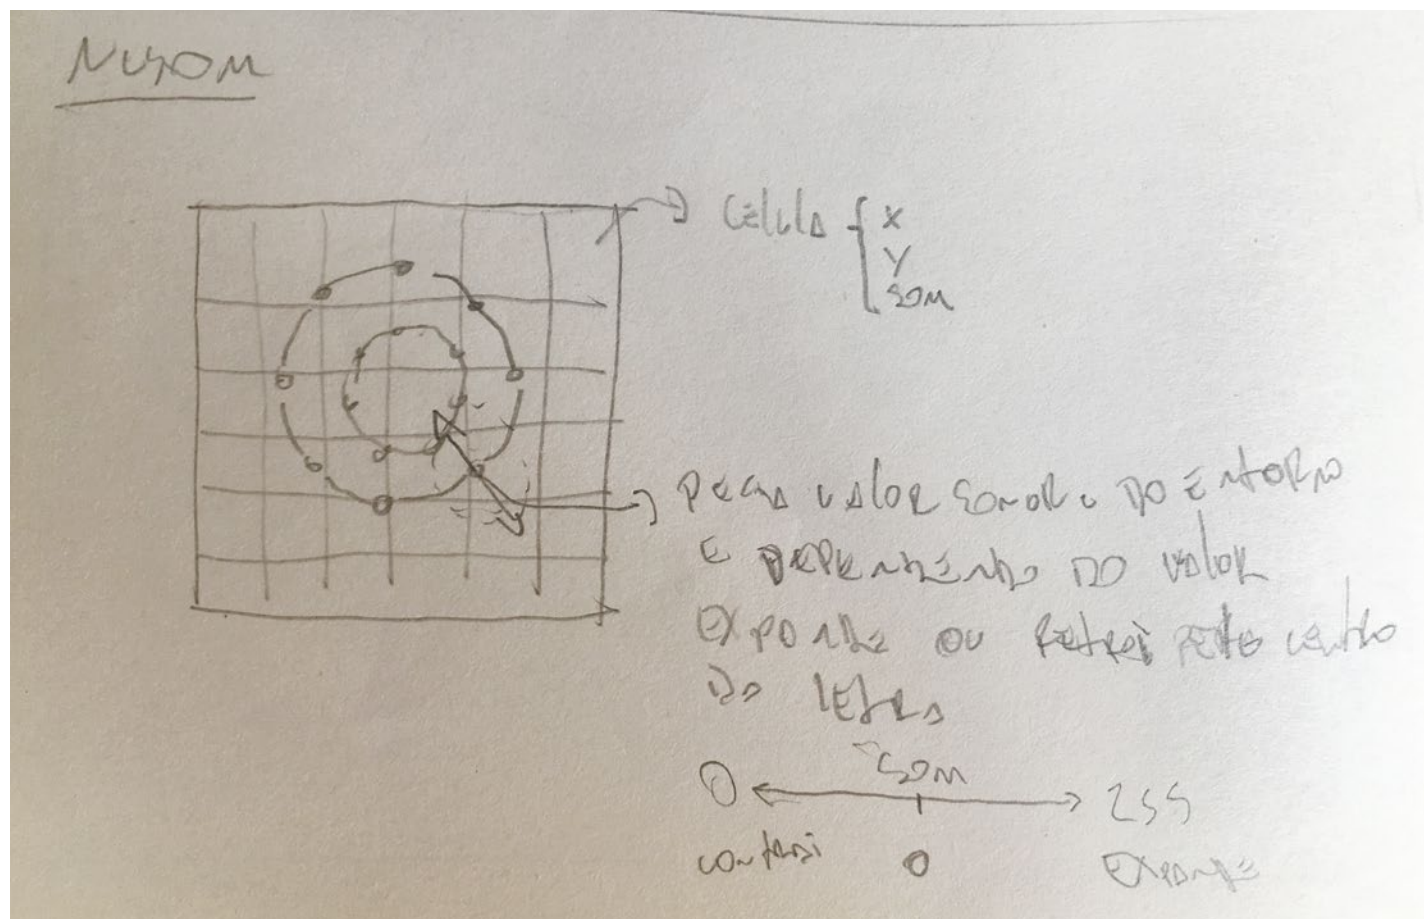 NUSOM
Célula { X
Y
SOM
PEGA VALOR SONORO DO ENTORNO
E DEPENDENDO DO VALOR
EXPANDE OU RETRAI PELO CENTRO
DA LETRA
SOM
0 255
contrai 0 EXPANDE